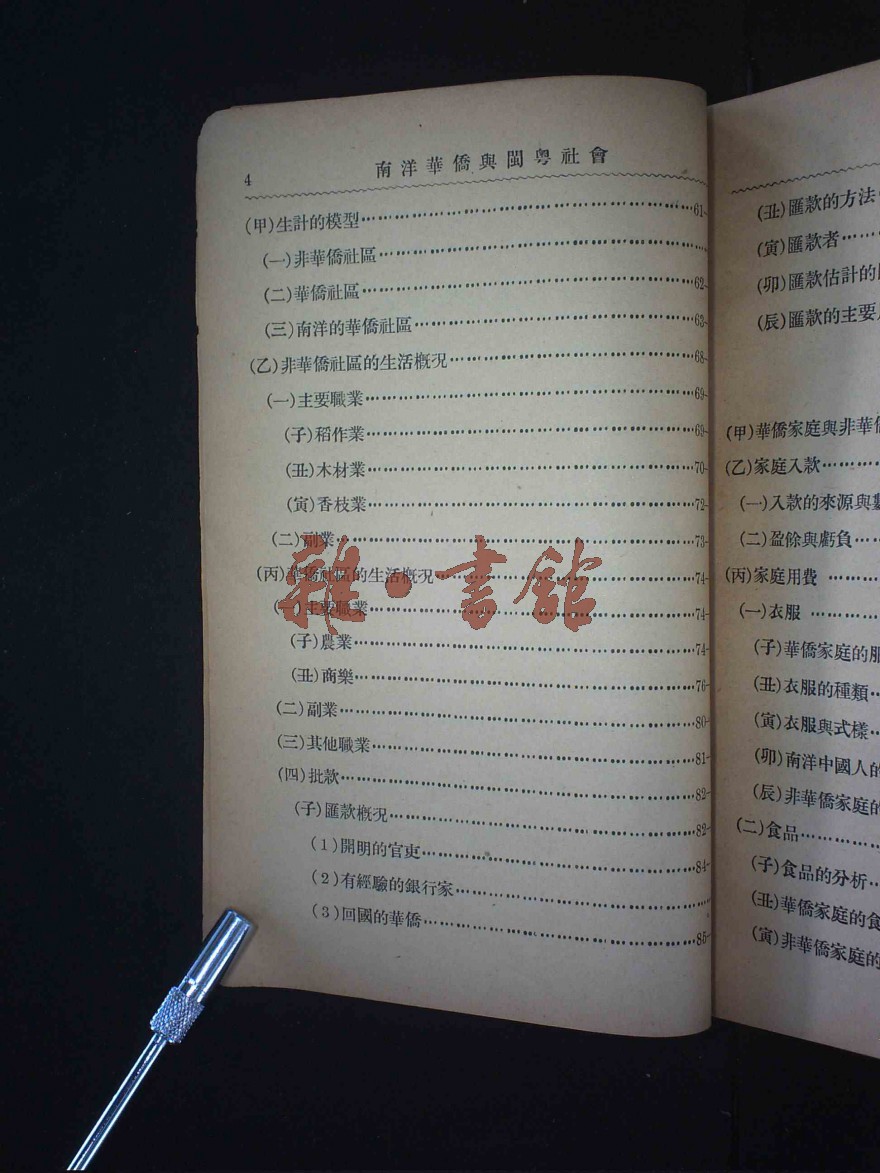 4
南洋華僑與閩粤社會
(甲)生計的模型……61-
(一)非華僑社區……
(二)華僑社區……62-
(三)南洋的華僑社區……63-
(乙)非華僑社區的生活概況……68-
(一)主要職業……69-
(子)稻作業……69-
(丑)木材業……70-
(寅)香枝業……72-
(二)副業……73-
(丙)華僑社區的生活概況……74-
(一)主要職業……74-
(子)農業……74-
(丑)商樂……76-
(二)副業……80-
(三)其他職業……81-
(四)批款……82-
(子)匯款概況……82-
(1)開明的官吏……84-
(2)有經驗的銀行家……
(3)回國的華僑……85-
雅·書館
(丑)匯款的方法
(寅)匯款者……
(卯)匯款估計的
(辰)匯款的主要
(甲)華僑家庭與非華
(乙)家庭入款……
(一)入款的來源與
(二)盈餘與虧負……
(丙)家庭用費……
(一)衣服……
(子)華僑家庭的
(丑)衣服的種類……
(寅)衣服與式樣……
(卯)南洋中國人的
(辰)非華僑家庭的
(二)食品……
(子)食品的分析……
(丑)華僑家庭的食
(寅)非華僑家庭的